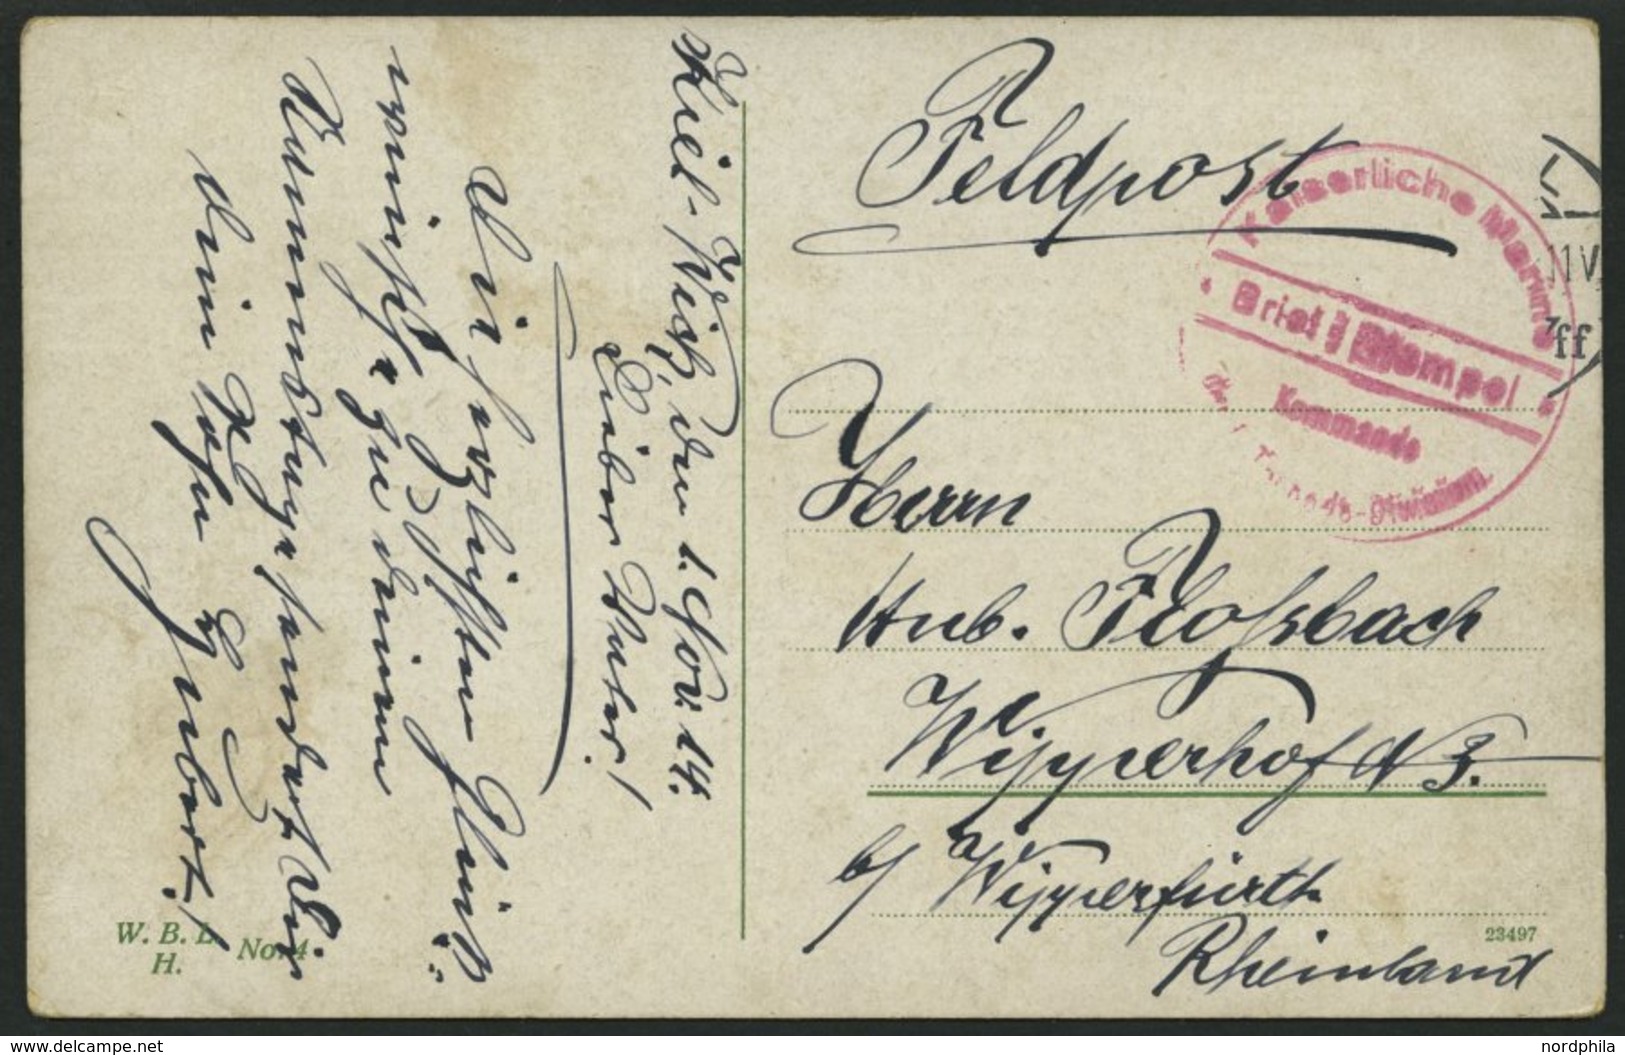 Kiel-Wik, den 1. Nov. 14.
Lieber Vater!
Die herzlichsten Glück-
wünsche zu deinem
Namenstage sendet Dir
Dein Sohn
Hubert!
W. B. L.
H.
No. 4
Feldpost
Kaiserliche Marine
Brief Stempel
Kommando
Torpedo-Division
11 V
ff
Herrn
Hub. Flossbach
Wipperhof N 3.
b/ Wipperfürth
Rheinland
23497
www.delcampe.net
nordphila